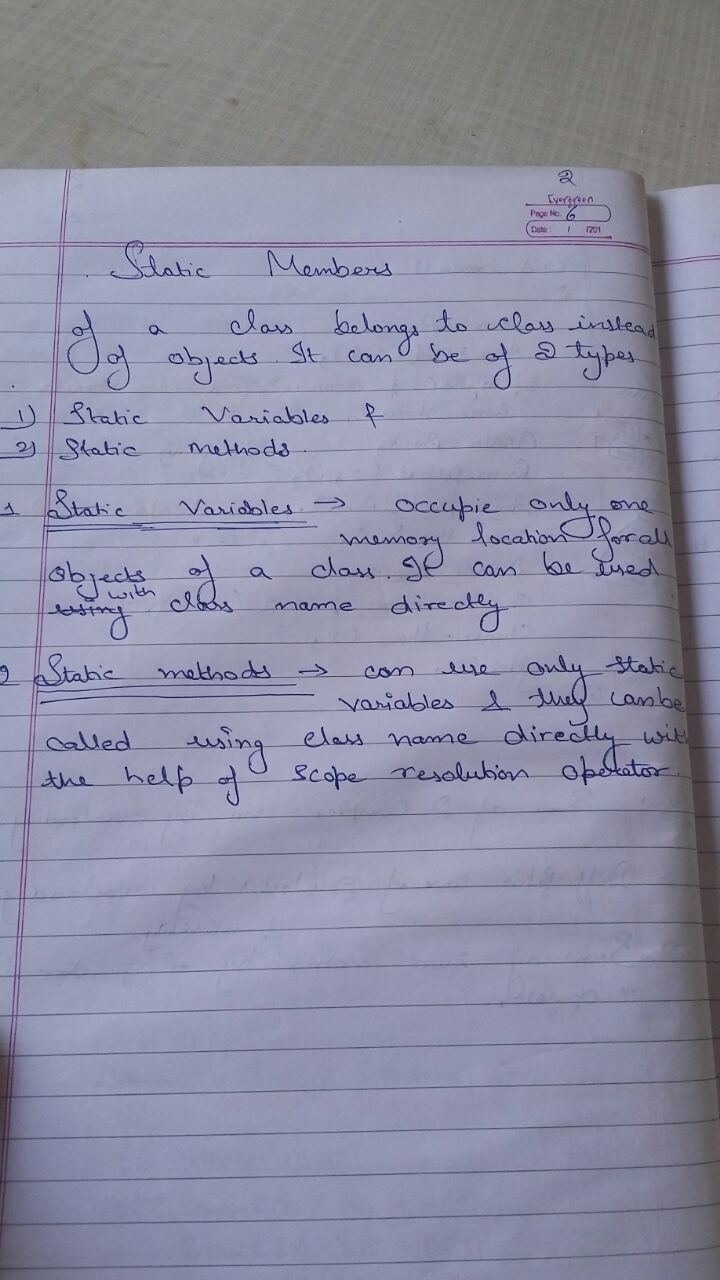 2
Evergreen
Page No. 6
Date : / /201
Static Members
of a class belongs to class instead
of objects. It can be of 2 types
1) Static Variables &
2) Static methods.
1 Static Variables → occupie only one
memory location for all
objects of a class. It can be used
with
using class name directly
2 Static methods → can use only static
variables & they can be
called using class name directly with
the help of scope resolution operator.